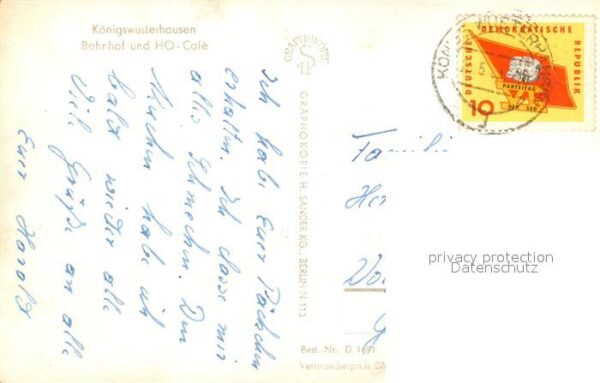 Königswusterhausen
Bahnhof und HO-Café
Ich habe Euer Päckchen
erhalten. Ich lasse mir
alles schmecken. Den
Kuchen habe ich
bald wieder alle
Viel Grüße an alle
Euer Harold
GRAPHOKOPIE
GRAPHOKOPIE H. SANDER KG., BERLIN N 113
Best.-Nr. D 1671
Verbraucherpreis DM
DEUTSCHE DEMOKRATISCHE REPUBLIK
PARTEITAG
DER SED
10
Familie
privacy protection
Datenschutz